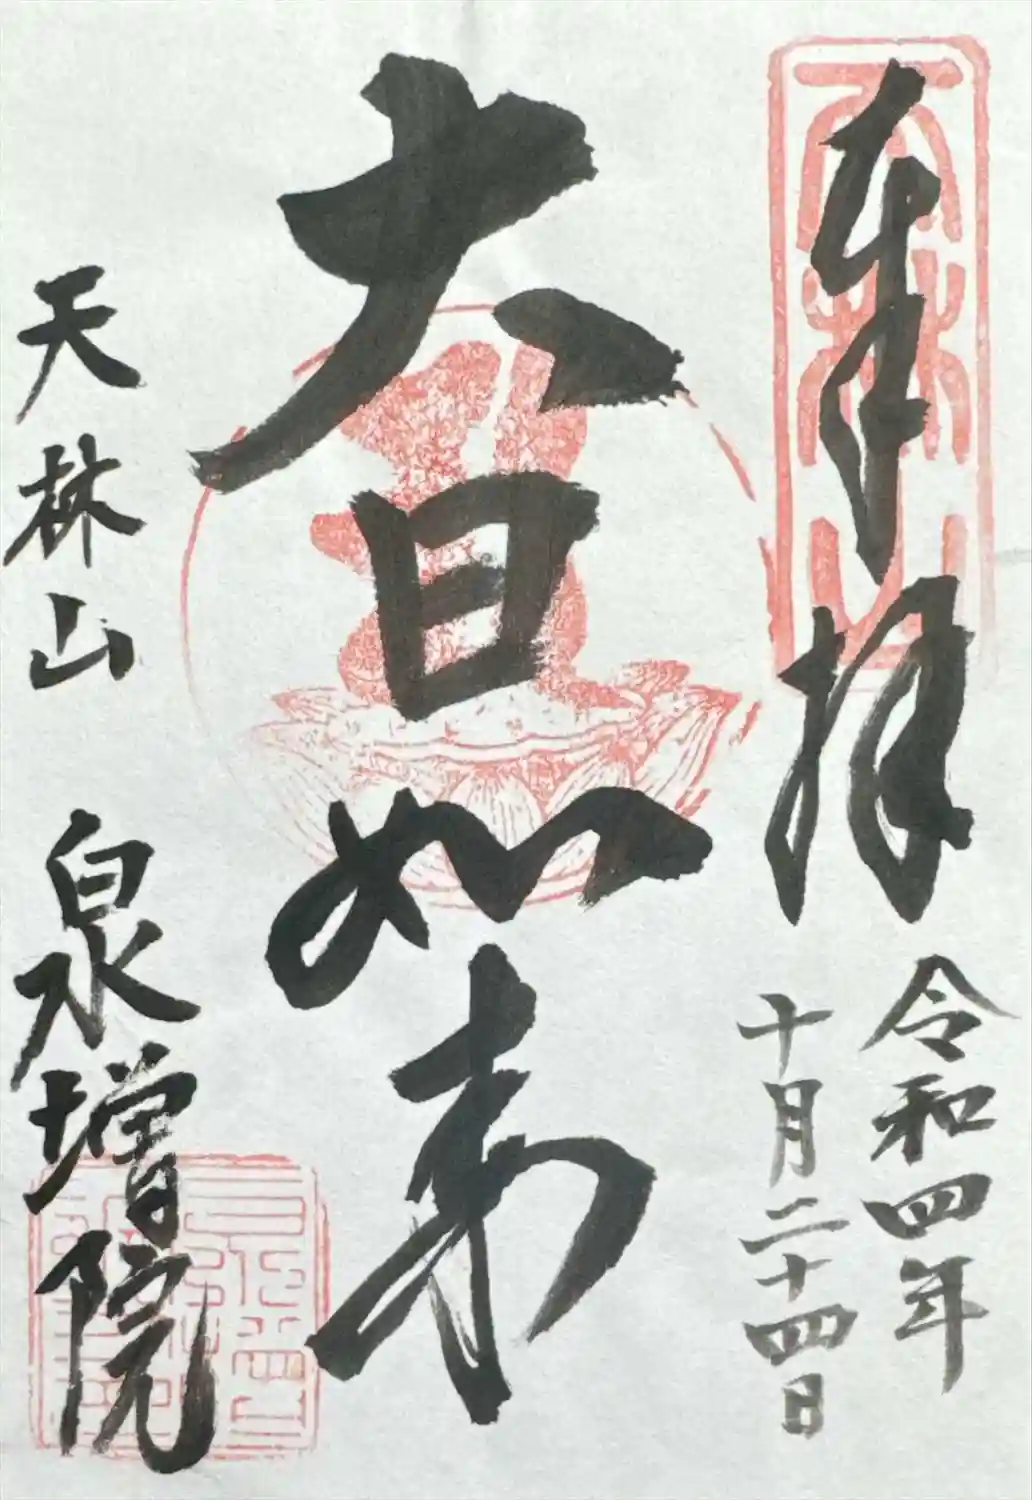 奉拝
令和四年
十月二十四日
大日如来
天林山
泉增院
天林山